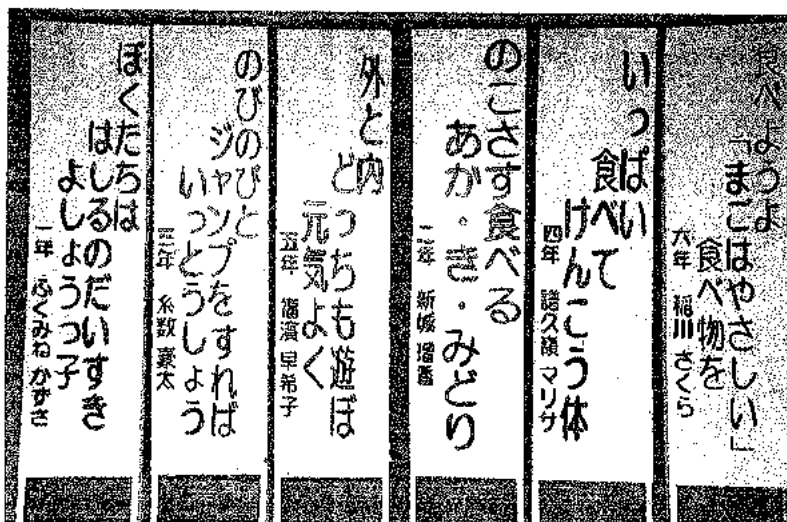 食べようよ
「まごはやさしい」
食べ物を
六年 稲川 さくら
いっぱい
食べて
けんこう体
四年 譜久嶺 マリサ
のこさず食べる
あか・き・みどり
二年 新城
外と内
どっちも遊ぼ
元気よく
五年 福濱 早希子
のびのびと
ジャンプをすれば
いっとうしょう
三年 糸数 豪太
ぼくたちは
はしるのだいすき
よしょうっ子
一年 ふくみね かずさ